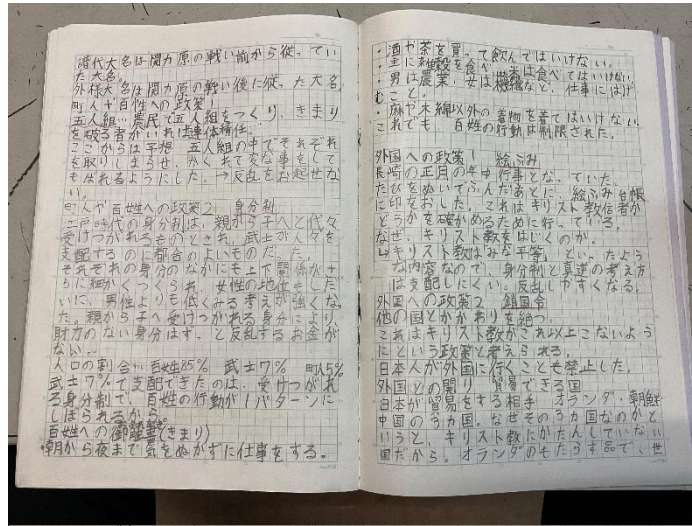 譜代大名は関ヶ原の戦い前から従ってい
た大名。
外様大名は関ヶ原の戦い後に従った大名。
町人や百姓への政策1
五人組…農民で五人組をつくり、きまり
を破る者がいれば連体責任。
ここからは予想 五人組の中でそれぞれ
を取りしまらせ、かくれて変な事をして
もばれるようにした。→反乱をお起せな
い。
町人や百姓への政策2 身分制
江戸時代の身分制は、親から子へと代々
受けつがれるものとされ、武士が人々を
支配するのに都合のよいものだった。
それぞれの身分のなかにも上下関係がさ
らに細かくつくられ、女性の地位も
いに、男性よりも低くみる考えが強くな
た。親から子へ受けつがれる身分により、
財力のない身分はずっと反乱するお金が
ない。
人口の割合…百姓85% 武士7% 町人5%
武士7%で支配できたのは、受けつがれ
る身分制で、百姓の行動が1パターンに
しばられるから
百姓への御触書(きまり)
・朝から夜まで気をぬかずに仕事をする。
・酒や茶を買って飲んではいけない。
・主に雑穀を食べ 米は食べてはいけない。
・男は農業、女は機織など、仕事にはげ
むこと。
・麻や木綿以外の着物を着てはいけない。
これでも、百姓の行動は制限された。
外国への政策1 絵ふみ
長崎の正月の年中行事となっていた。
たびをぬいでふんだあとに、絵ふみ台帳
に印をおした。これはキリスト教信者か
どうかを確かめるために行っている。
なぜ、キリスト教をはじくのか。
↳キリスト教は「みな平等」といったよう
な内容なので、身分制と真逆の考え方
は支配しにくい。反乱しやすくなる。
外国への政策2 鎖国令
他の国とかかわりを絶つ。
これはキリスト教がこれ以上こないよう
にという政策と考えられる。
日本人が外国に行くことも禁止した。
外国との関り 貿易できる国
日本が貿易をする相手 オランダ・朝鮮
中国の3ヵ国。なぜその3ヵ国なのかと
いうと、キリスト教にかたんしていない
国だから。オランダのもたらす品で、世